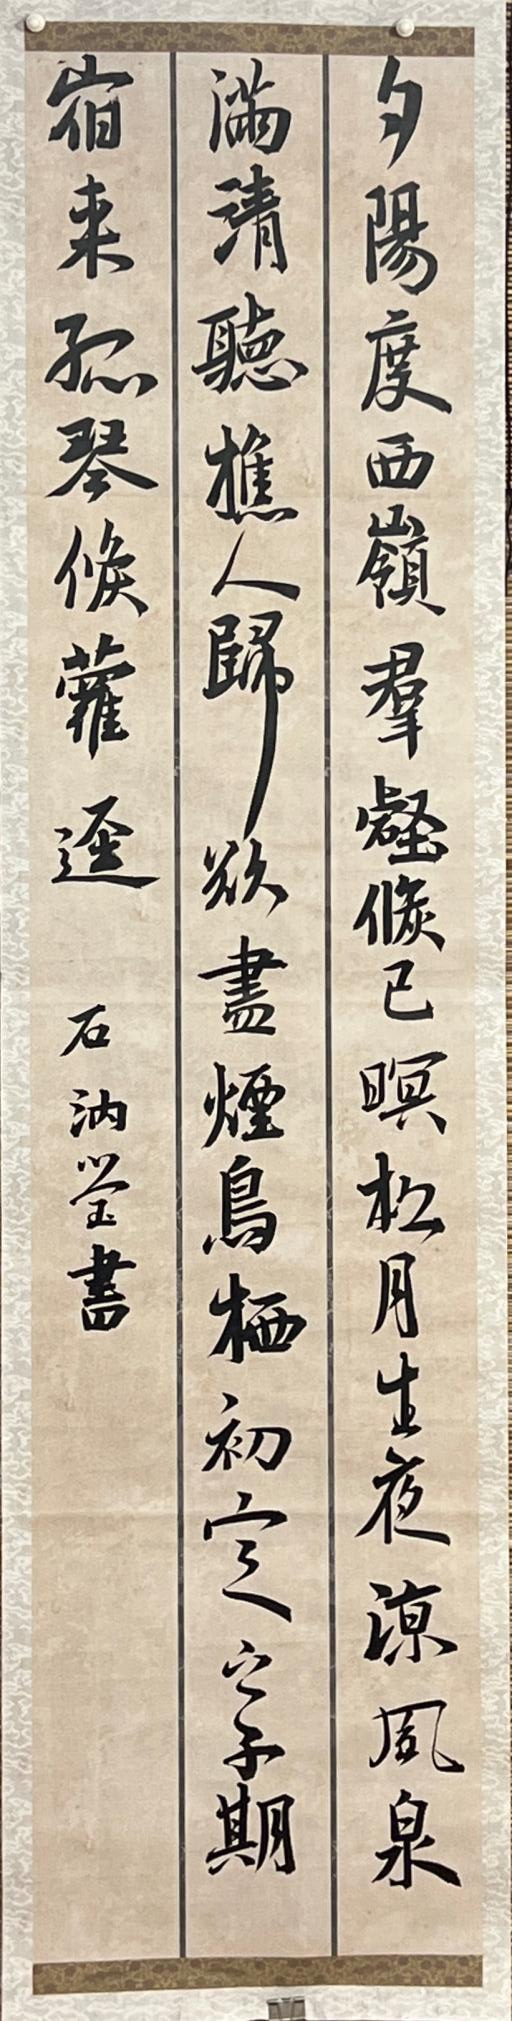 夕陽度西嶺羣壑倏已暝松月生夜涼風泉
滿清聽樵人歸欲盡煙鳥栖初定之子期
宿来孤琴候蘿逕
石汭瑩書